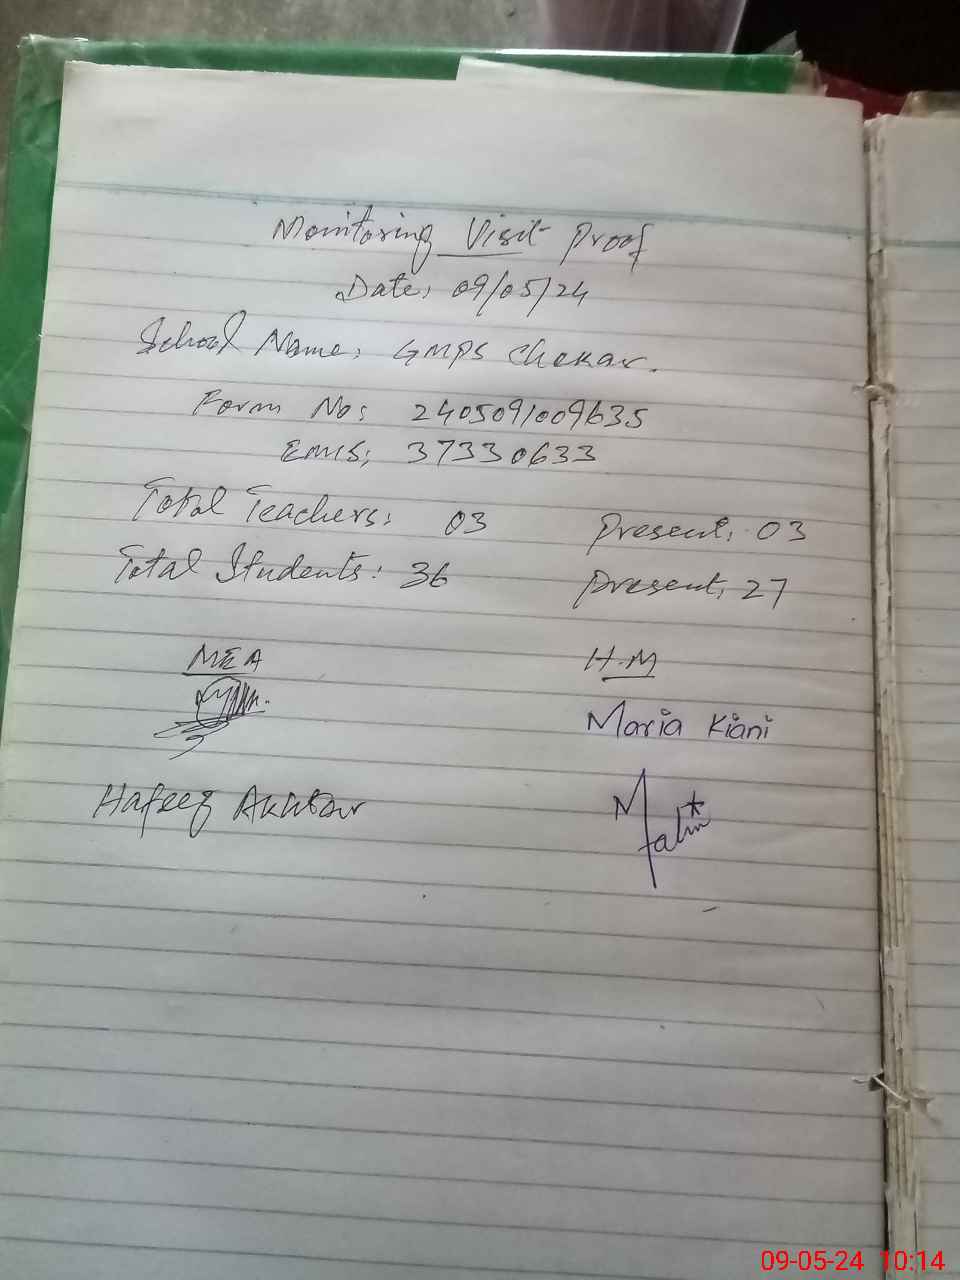 Monitoring Visit Proof
Date: 09/05/24
School Name: GMPS Chekar.
Form No: 2405091009635
EMIS: 37330633
Total Teachers: 03 Present: 03
Total Students: 36 Present: 27
MEA H.M
Maria Kiani
Hafeez Akhtar
09-05-24 10:14